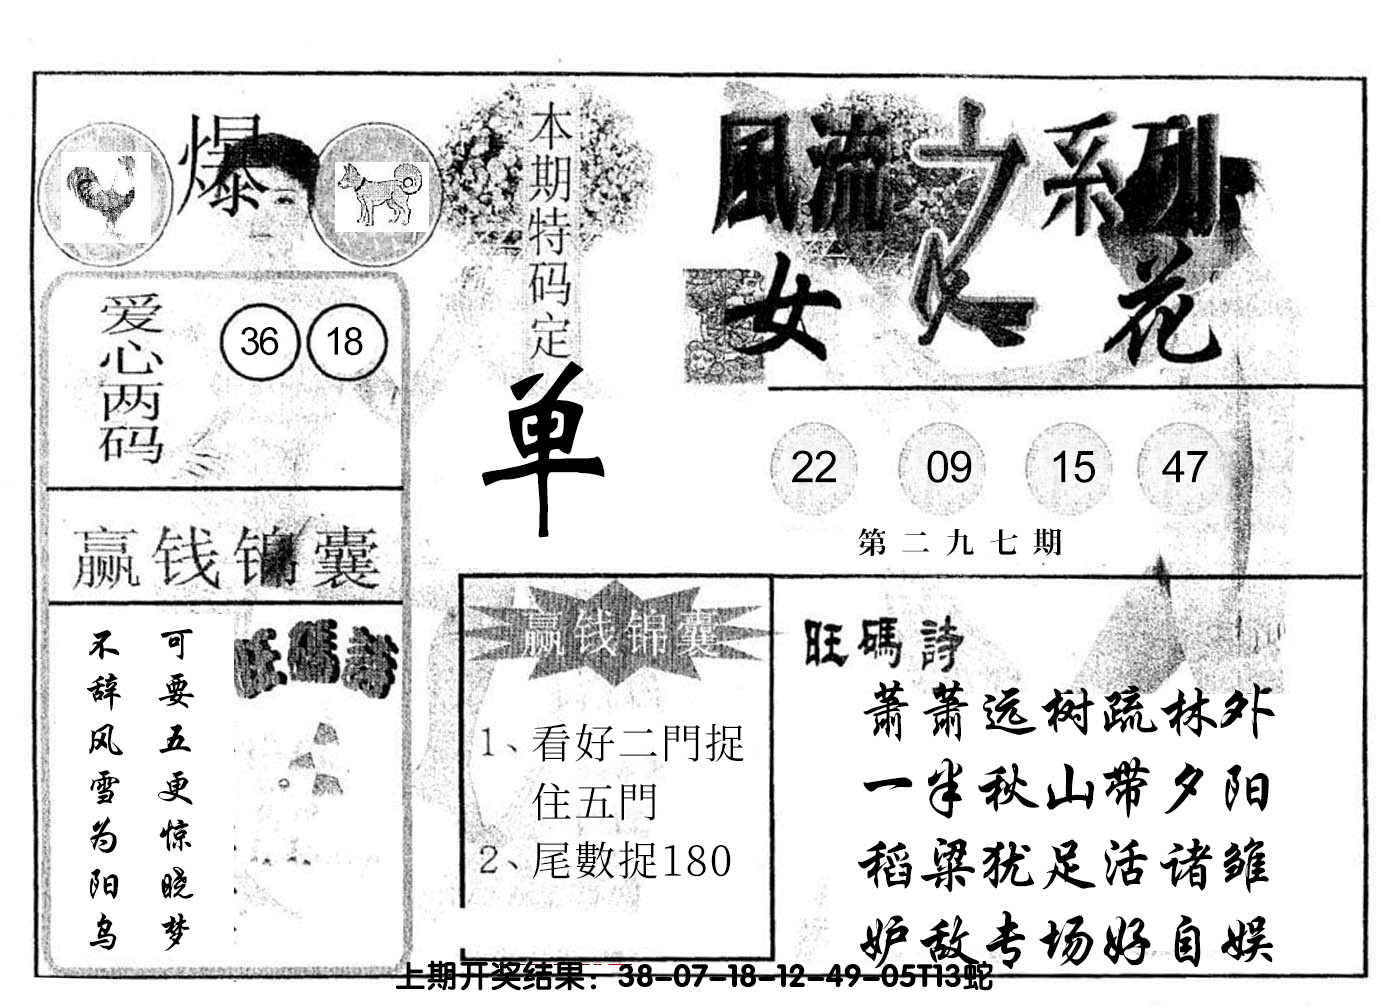 爆
爱心两码
36 18
赢钱锦囊
可要五更惊晓梦
不辞风雪为阳鸟
旺碼詩
本期特码定
单
風流之系列
女人花
22 09 15 47
第二九七期
赢钱锦囊
1、看好二門捉
住五門
2、尾數捉180
旺碼詩
萧萧远树疏林外
一半秋山带夕阳
稻粱犹足活诸雏
妒敌专场好自娱
上期开奖结果：38-07-18-12-49-05T13蛇